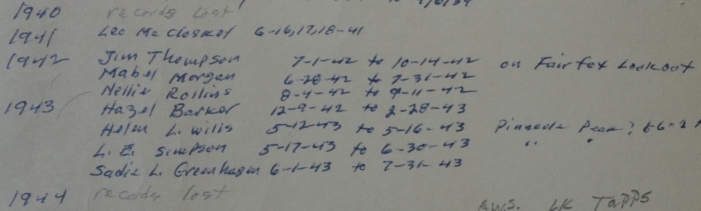 1940 records lost
1941 Leo McCloskey 6-16,17,18-41
1942 Jim Thompson 7-1-42 to 10-14-42 on Fairfax Lookout
Mabel Morgan 6-28-42 to 7-31-42
Nellie Rollins 8-4-42 to 9-11-42
1943 Hazel Barker 12-9-42 to 2-28-43
Helen L. Wills 5-12-43 to 5-16-43 Pinnacle Peak?
L. E. Simpson 5-17-43 to 6-30-43 " "
Sadie L. Greenhagen 6-1-43 to 7-31-43
1944 records lost
AWS. LK TAPPS